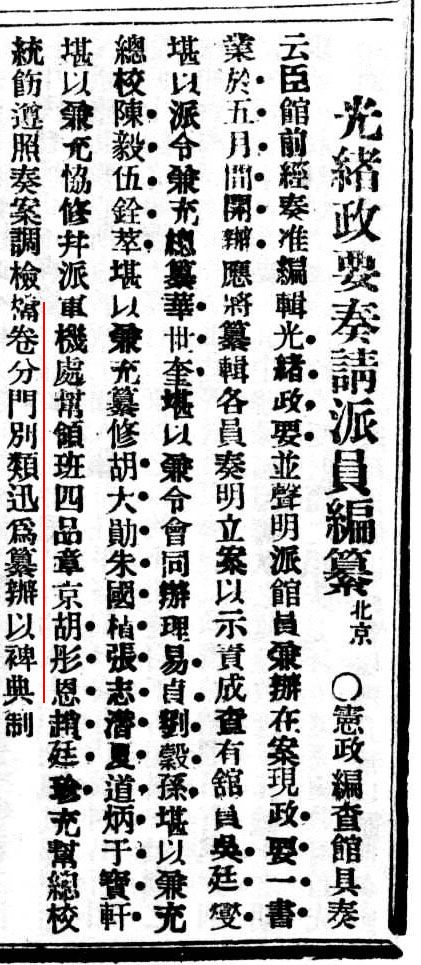 光緒政要奏請派員編纂 北京 ○憲政編查館具奏
云臣館前經奏准編輯光緒政要並聲明派館員兼辦在案現政要一書
業於五月間開辦應將纂輯各員奏明立案以示責成查有舘員吳廷燮
堪以派令兼充總纂華世奎堪以兼令會同辦理易貞劉穀孫堪以兼充
總校陳毅伍銓萃堪以兼充纂修胡大勛朱國楨張志潛夏道炳于寶軒
堪以兼充恊修幷派軍機處幫領班四品章京胡彤恩趙廷珍充幫總校
統飭遵照奏案調檢檔卷分門別類迅爲纂辦以裨典制